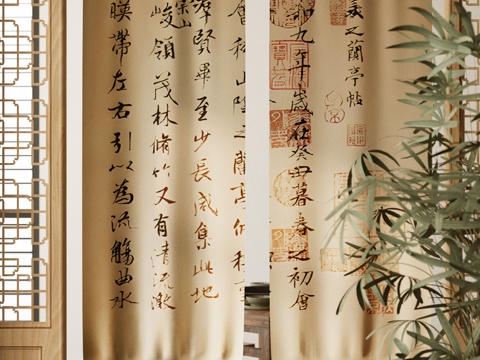 羲之蘭亭帖
和九年歲在癸丑暮春之初會
會稽山陰之蘭亭脩稧
群賢畢至少長咸集此地
崇山
峻領茂林脩竹又有清流激
暎帶左右引以為流觴曲水